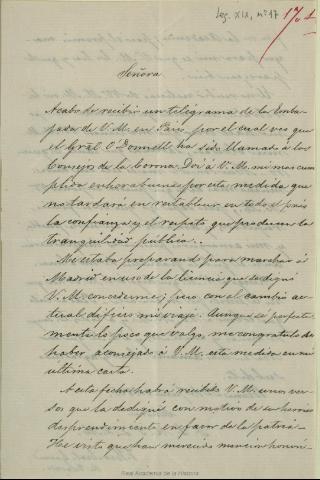 Leg. XIX, nº 17
17-1
Señora
Acabo de recibir un telégrama de la Emba-
jada de V. M. en Paris por el cual veo que
el Gral. O'Donnell ha sido llamado á los
Consejos de la Corona. Doi á V. M. mi mas cum-
plida enhorabuena por esta medida que
no tardará en restablecer en todo el pais
la confianza y el respeto que producen la
tranquilidad publica..
Me estaba preparando para marchar á
Madrid en uso de la licencia que se dignó
V. M. concederme; pero con el cambio ac-
tual difiero mi viaje. Aunque sé perfecta-
mente lo poco que valgo, me congratulo de
haber aconsejado á V. M. esta medida en mi
ultima carta.
A esta fecha habrá recibido V. M. unos ver-
sos que la dediqué con motivo de su hermoso
desprendimiento en favor de la patria.
He visto que han merecido mencion honorí-
Real Academia de la Historia